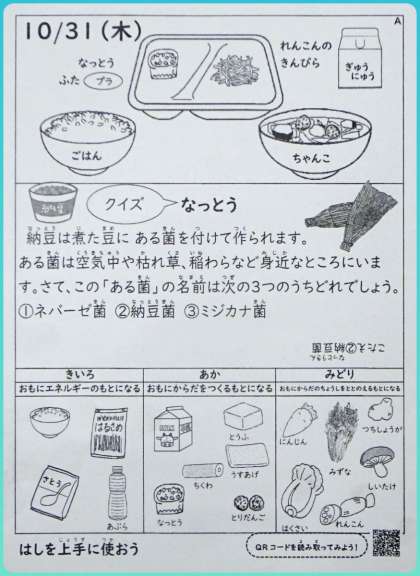 10/31(木)
A
なっとう
ふた プラ
れんこんの
きんぴら
ぎゅう
にゅう
ごはん
ちゃんこ
クイズ
なっとう
納豆は煮た豆に ある菌を付けて作られます。
ある菌は空気中や枯れ草、稲わらなど身近なところにいま
す。さて、この「ある菌」の名前は次の3つのうちどれでしょう。
①ネバーゼ菌 ②納豆菌 ③ミジカナ菌
こたえ②納豆菌
きいろ
おもにエネルギーのもとになる
あか
おもにからだをつくるもとになる
みどり
おもにからだのちょうしをととのえるもとになる
はるさめ
さとう
あぶら
とうふ
うすあげ
ちくわ
なっとう
とりだんご
にんじん
つちしょうが
みずな
しいたけ
はくさい
れんこん
はしを上手に使おう
QRコードを読み取ってみよう!